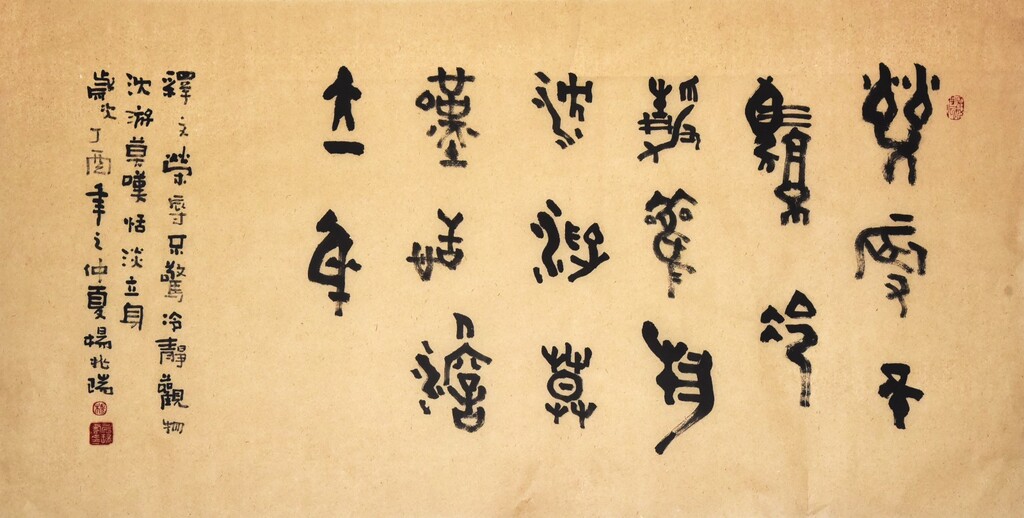 榮辱不
驚冷
靜觀物
沈浮莫
嘆恬淡
立身
釋文榮辱不驚冷靜觀物
沈浮莫嘆恬淡立身
歲次丁酉年之仲夏楊兆瑞